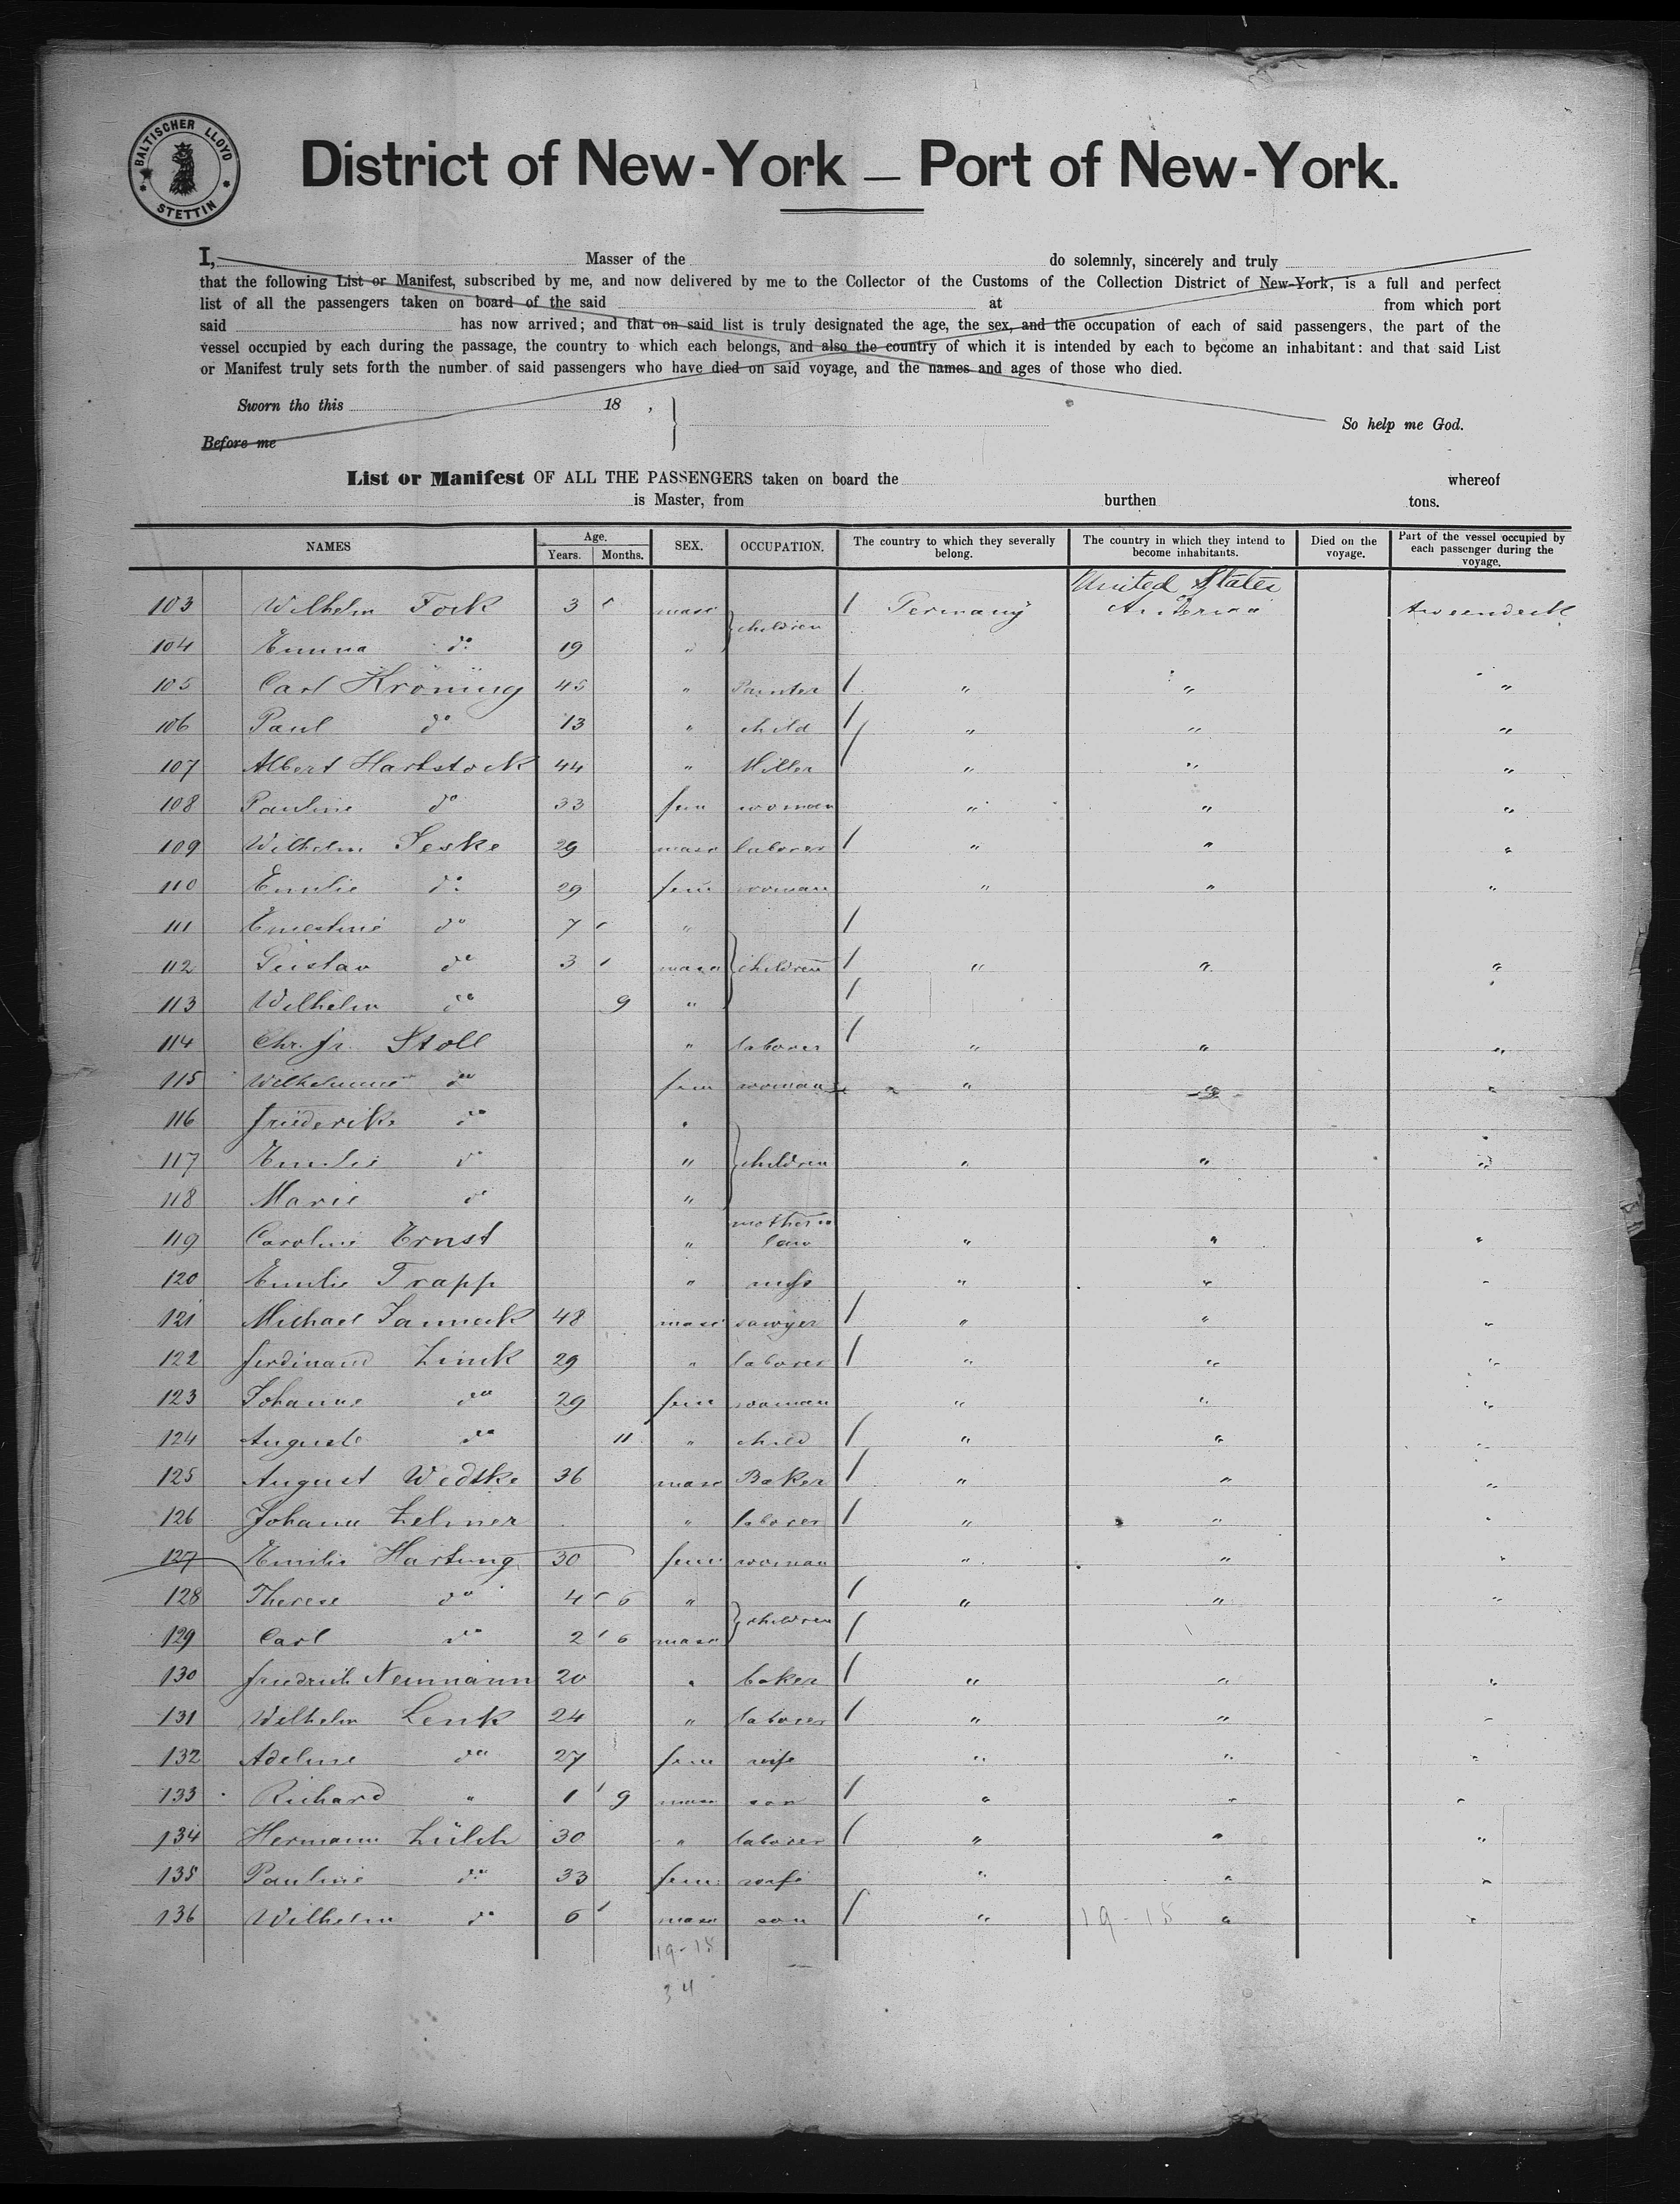 BALTISCHER LLOYD
STETTIN
District of New-York — Port of New-York.
I, Masser of the do solemnly, sincerely and truly
that the following List or Manifest, subscribed by me, and now delivered by me to the Collector of the Customs of the Collection District of New-York, is a full and perfect
list of all the passengers taken on board of the said at from which port
said has now arrived; and that on said list is truly designated the age, the sex, and the occupation of each of said passengers, the part of the
vessel occupied by each during the passage, the country to which each belongs, and also the country of which it is intended by each to become an inhabitant: and that said List
or Manifest truly sets forth the number of said passengers who have died on said voyage, and the names and ages of those who died.
Sworn tho this 18 ,
So help me God.
Before me
List or Manifest OF ALL THE PASSENGERS taken on board the whereof
is Master, from burthen tons.
NAMES Age. Years. Months. SEX. OCCUPATION. The country to which they severally belong. The country in which they intend to become inhabitants. Died on the voyage. Part of the vessel occupied by each passenger during the voyage.
United States
103 Wilhelm Fock 3 masc children / Germany America tweendeck
104 Emma do 19 "
105 Carl Kröning 45 " Painter / " " "
106 Paul do 13 " child / " " "
107 Albert Hartstock 44 " Miller / " " "
108 Pauline do 33 fem woman " " "
109 Wilhelm Jeske 29 masc laborer / " " "
110 Emilie do 29 fem woman " " "
111 Ernestine do 7 " /
112 Gustav do 3 masc children / " " "
113 Wilhelm do 9 " /
114 Chr. fr. Stoll " laborer / " " "
115 Wilhelmine do fem woman " " "
116 friederike do "
117 Emilie do " children " " "
118 Marie do "
119 Caroline Ernst " mother in law " " "
120 Emilie Trapp " " " "
121 Michael Janneck 48 masc sawyer / " " "
122 ferdinand Zinck 29 " laborer / " " "
123 Johanne do 29 fem woman " " "
124 Auguste do 11 " child / " " "
125 August Wedtke 36 masc Baker / " " "
126 Johann Zelmer " laborer / " " "
127 Emilie Hartung 30 fem woman " " "
128 Therese do 4 6 " children / " " "
129 Carl do 2 6 masc /
130 friedrich Neumann 20 " baker / " " "
131 Wilhelm Lenk 24 " laborer / " " "
132 Adeline do 27 fem wife " " "
133 Richard " 1 9 masc son / " " "
134 Hermann Zülch 30 " laborer / " " "
135 Pauline do 33 fem wife " " "
136 Wilhelm do 6 masc son / " 19-15 " "
19-15
34